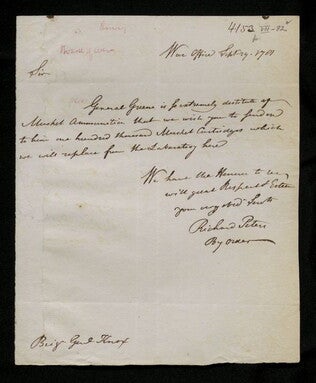 4153
War Office Sept 19. 1781
Sir
General Greene is so extremely destitute of
Musket Ammunition that we wish you to send on
to him one hundred thousand Musket Cartridges which
we will replace from the Laboratory here
We have the Honor to be
with great Respect & Esteem
your very Obd Servts
Richard Peters
By order
Brigr Genl Knox